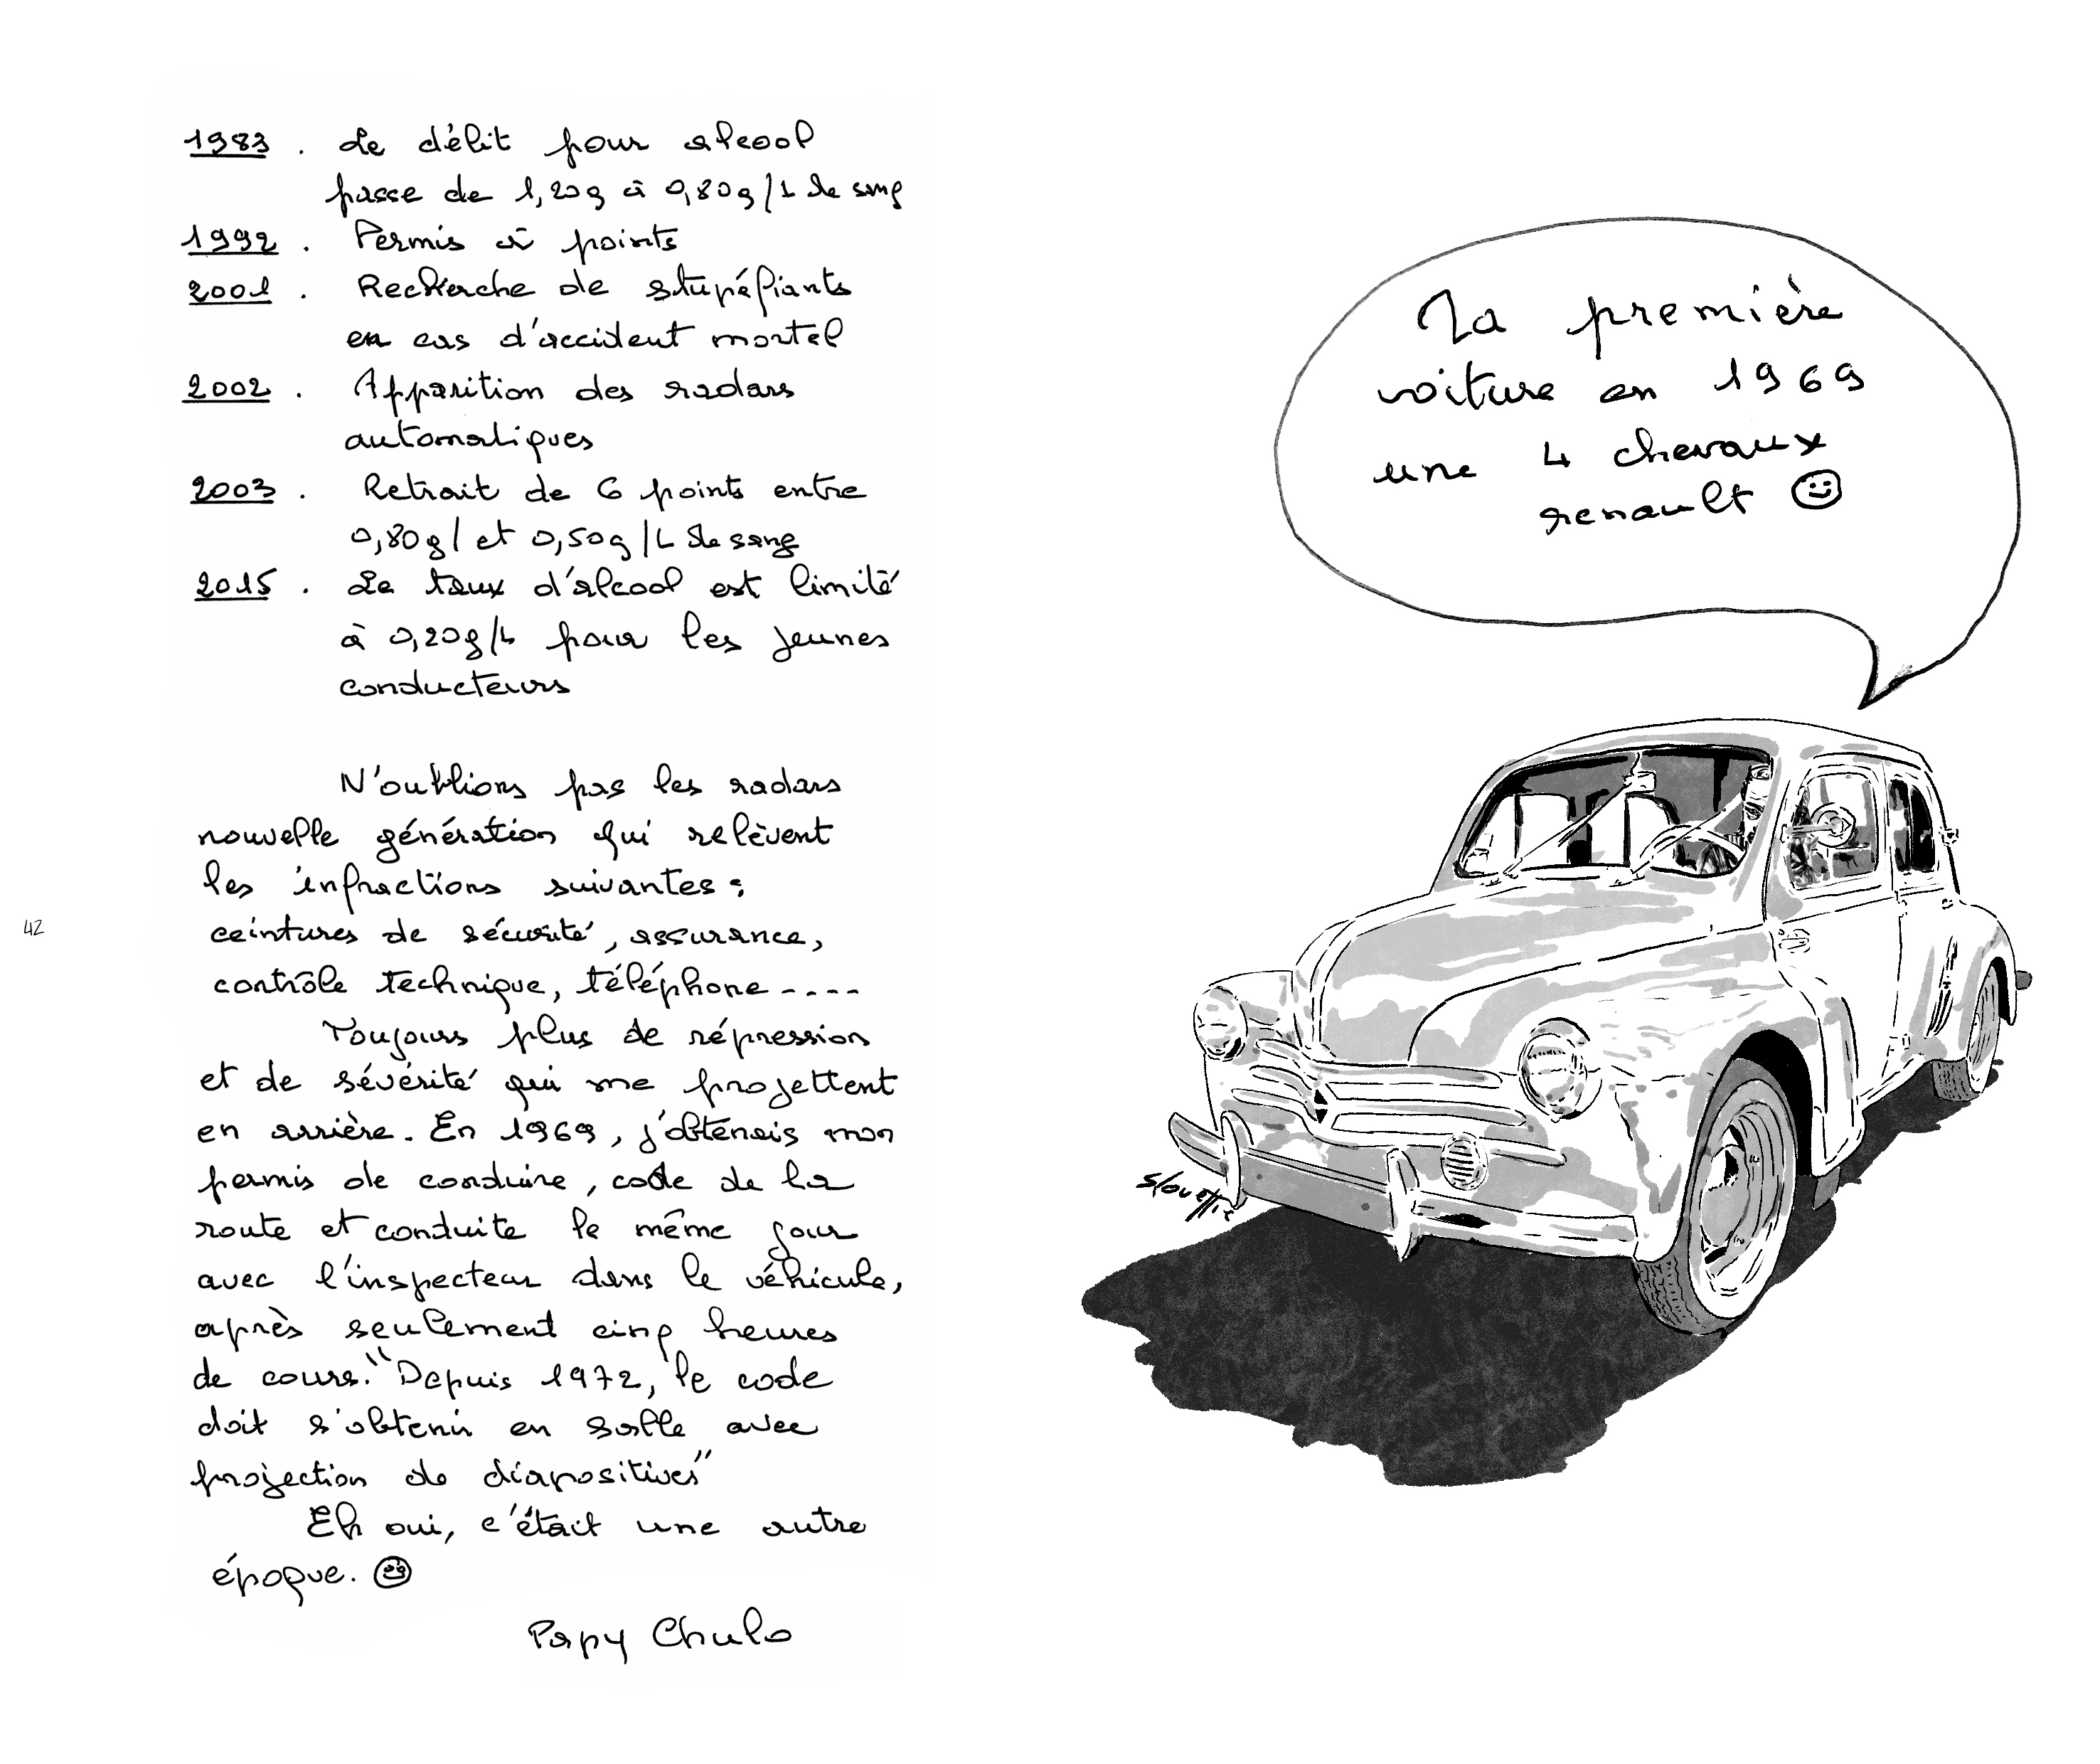 1983 . Le délit pour alcool
passe de 1,20g à 0,80g/L de sang
1992 . Permis à points
2001 . Recherche de stupéfiants
en cas d'accident mortel
2002 . Apparition des radars
automatiques
2003 . Retrait de 6 points entre
0,80g/ et 0,50g/L de sang
2015 . Le taux d'alcool est limité
à 0,20g/L pour les jeunes
conducteurs
N'oublions pas les radars
nouvelle génération qui relèvent
les infractions suivantes :
ceintures de sécurité, assurance,
contrôle technique, téléphone ----
Toujours plus de répression
et de sévérité qui me projettent
en arrière. En 1969, j'obtenais mon
permis de conduire, code de la
route et conduite le même jour
avec l'inspecteur dans le véhicule,
après seulement cinq heures
de cours. "Depuis 1972, le code
doit s'obtenir en salle avec
projection de diapositives"
Eh oui, c'était une autre
époque. ☺
Papy Chulo
42
Ma première
voiture en 1969
une 4 chevaux
renault ☺
Slouettic